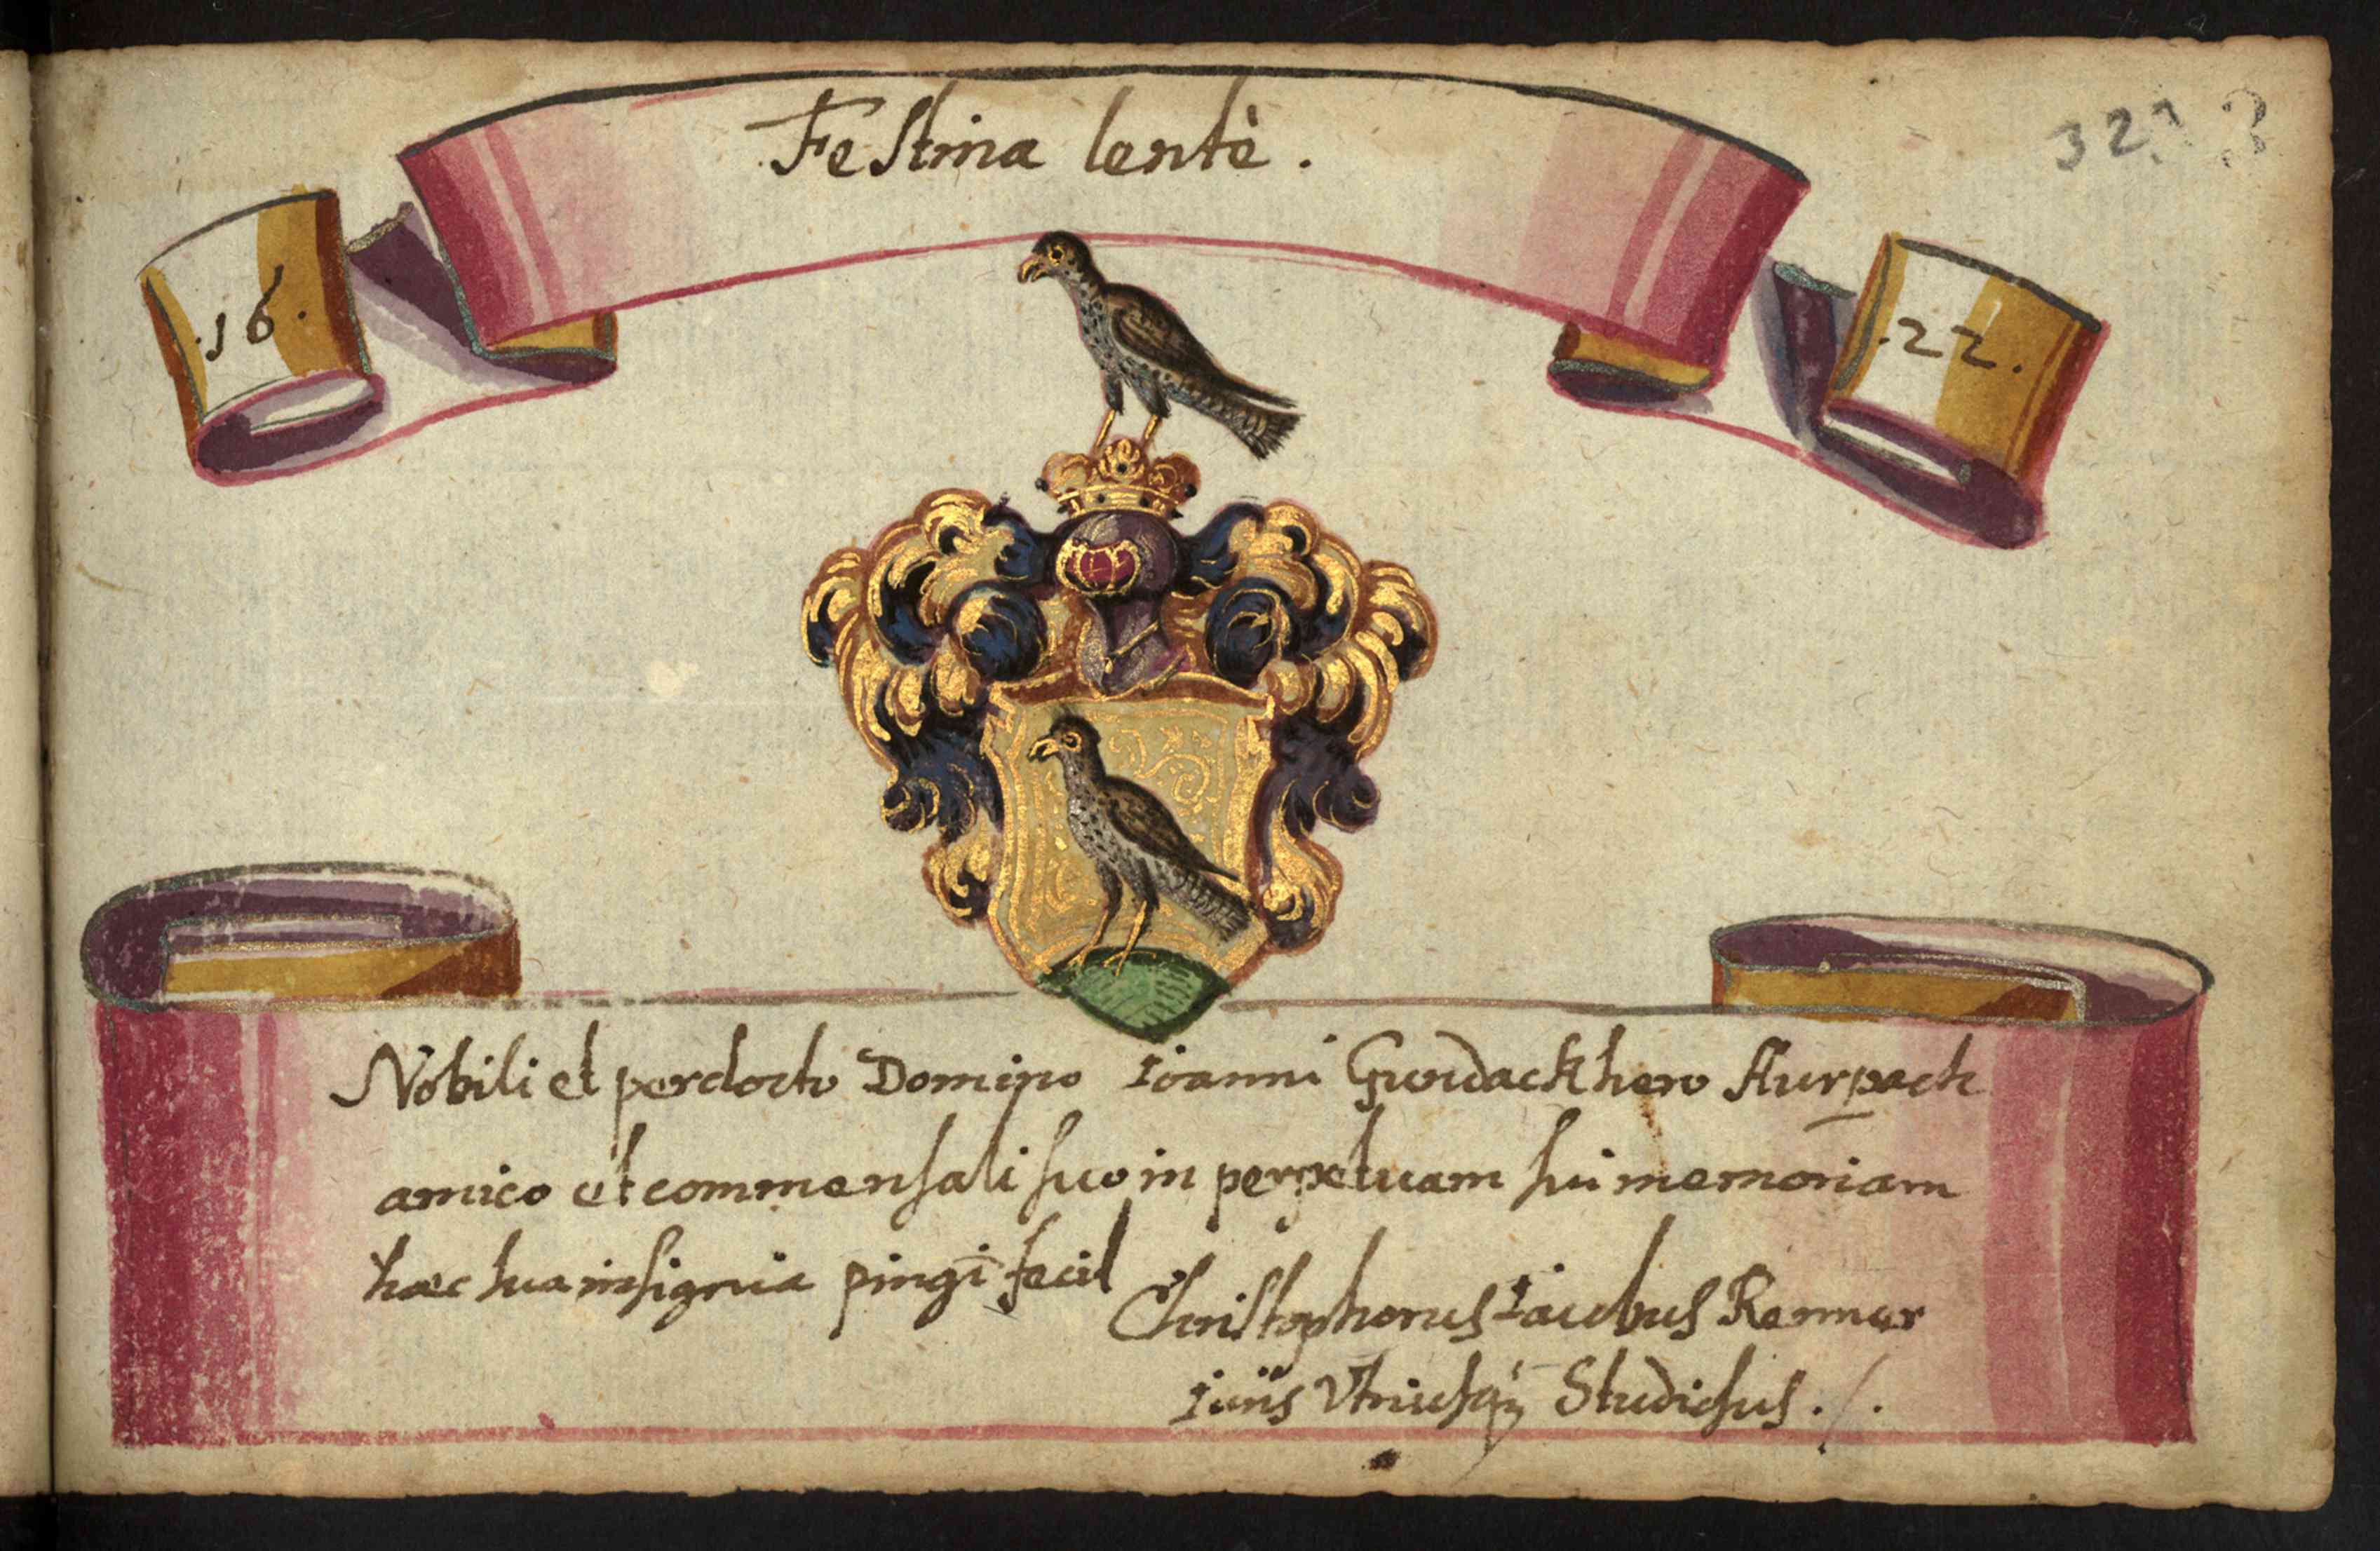 Festina lentè.
.16.
.22.
Nobili et perdocto Domino Ioanni Gundackhero Aurpach
amico et commensali suo in perpetuam sui memoriam
haec sua insignia pingi fecit
Christophorus Iacobus Renner
Iuris Vtriusq; Studiosus ./.